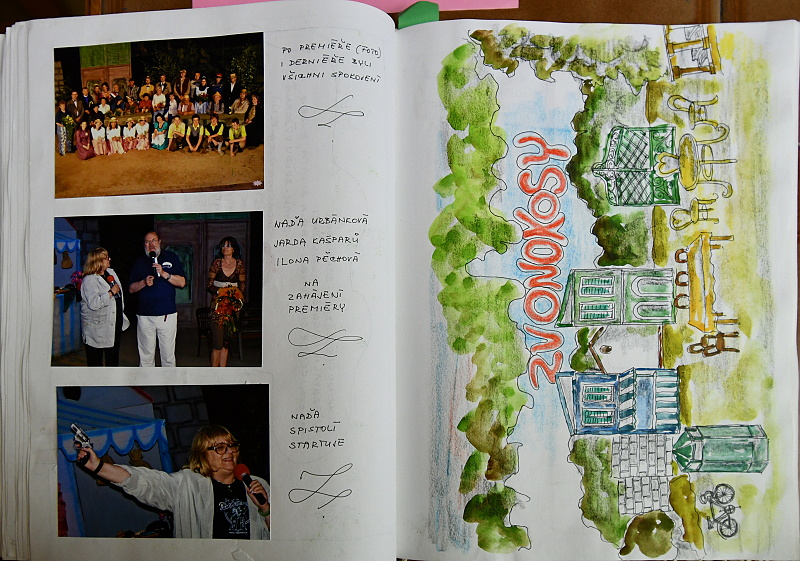 PO PREMIÉŘE (FOTO)
I DERNIÉŘE BYLI
VŠICHNI SPOKOJENÍ
NAĎA URBÁNKOVÁ
JARDA KAŠPARŮ
ILONA PĚCHOVÁ
NA
ZAHÁJENÍ
PREMIÉRY
NAĎA
S PISTOLÍ
STARTUJE
ZVONOKOSY